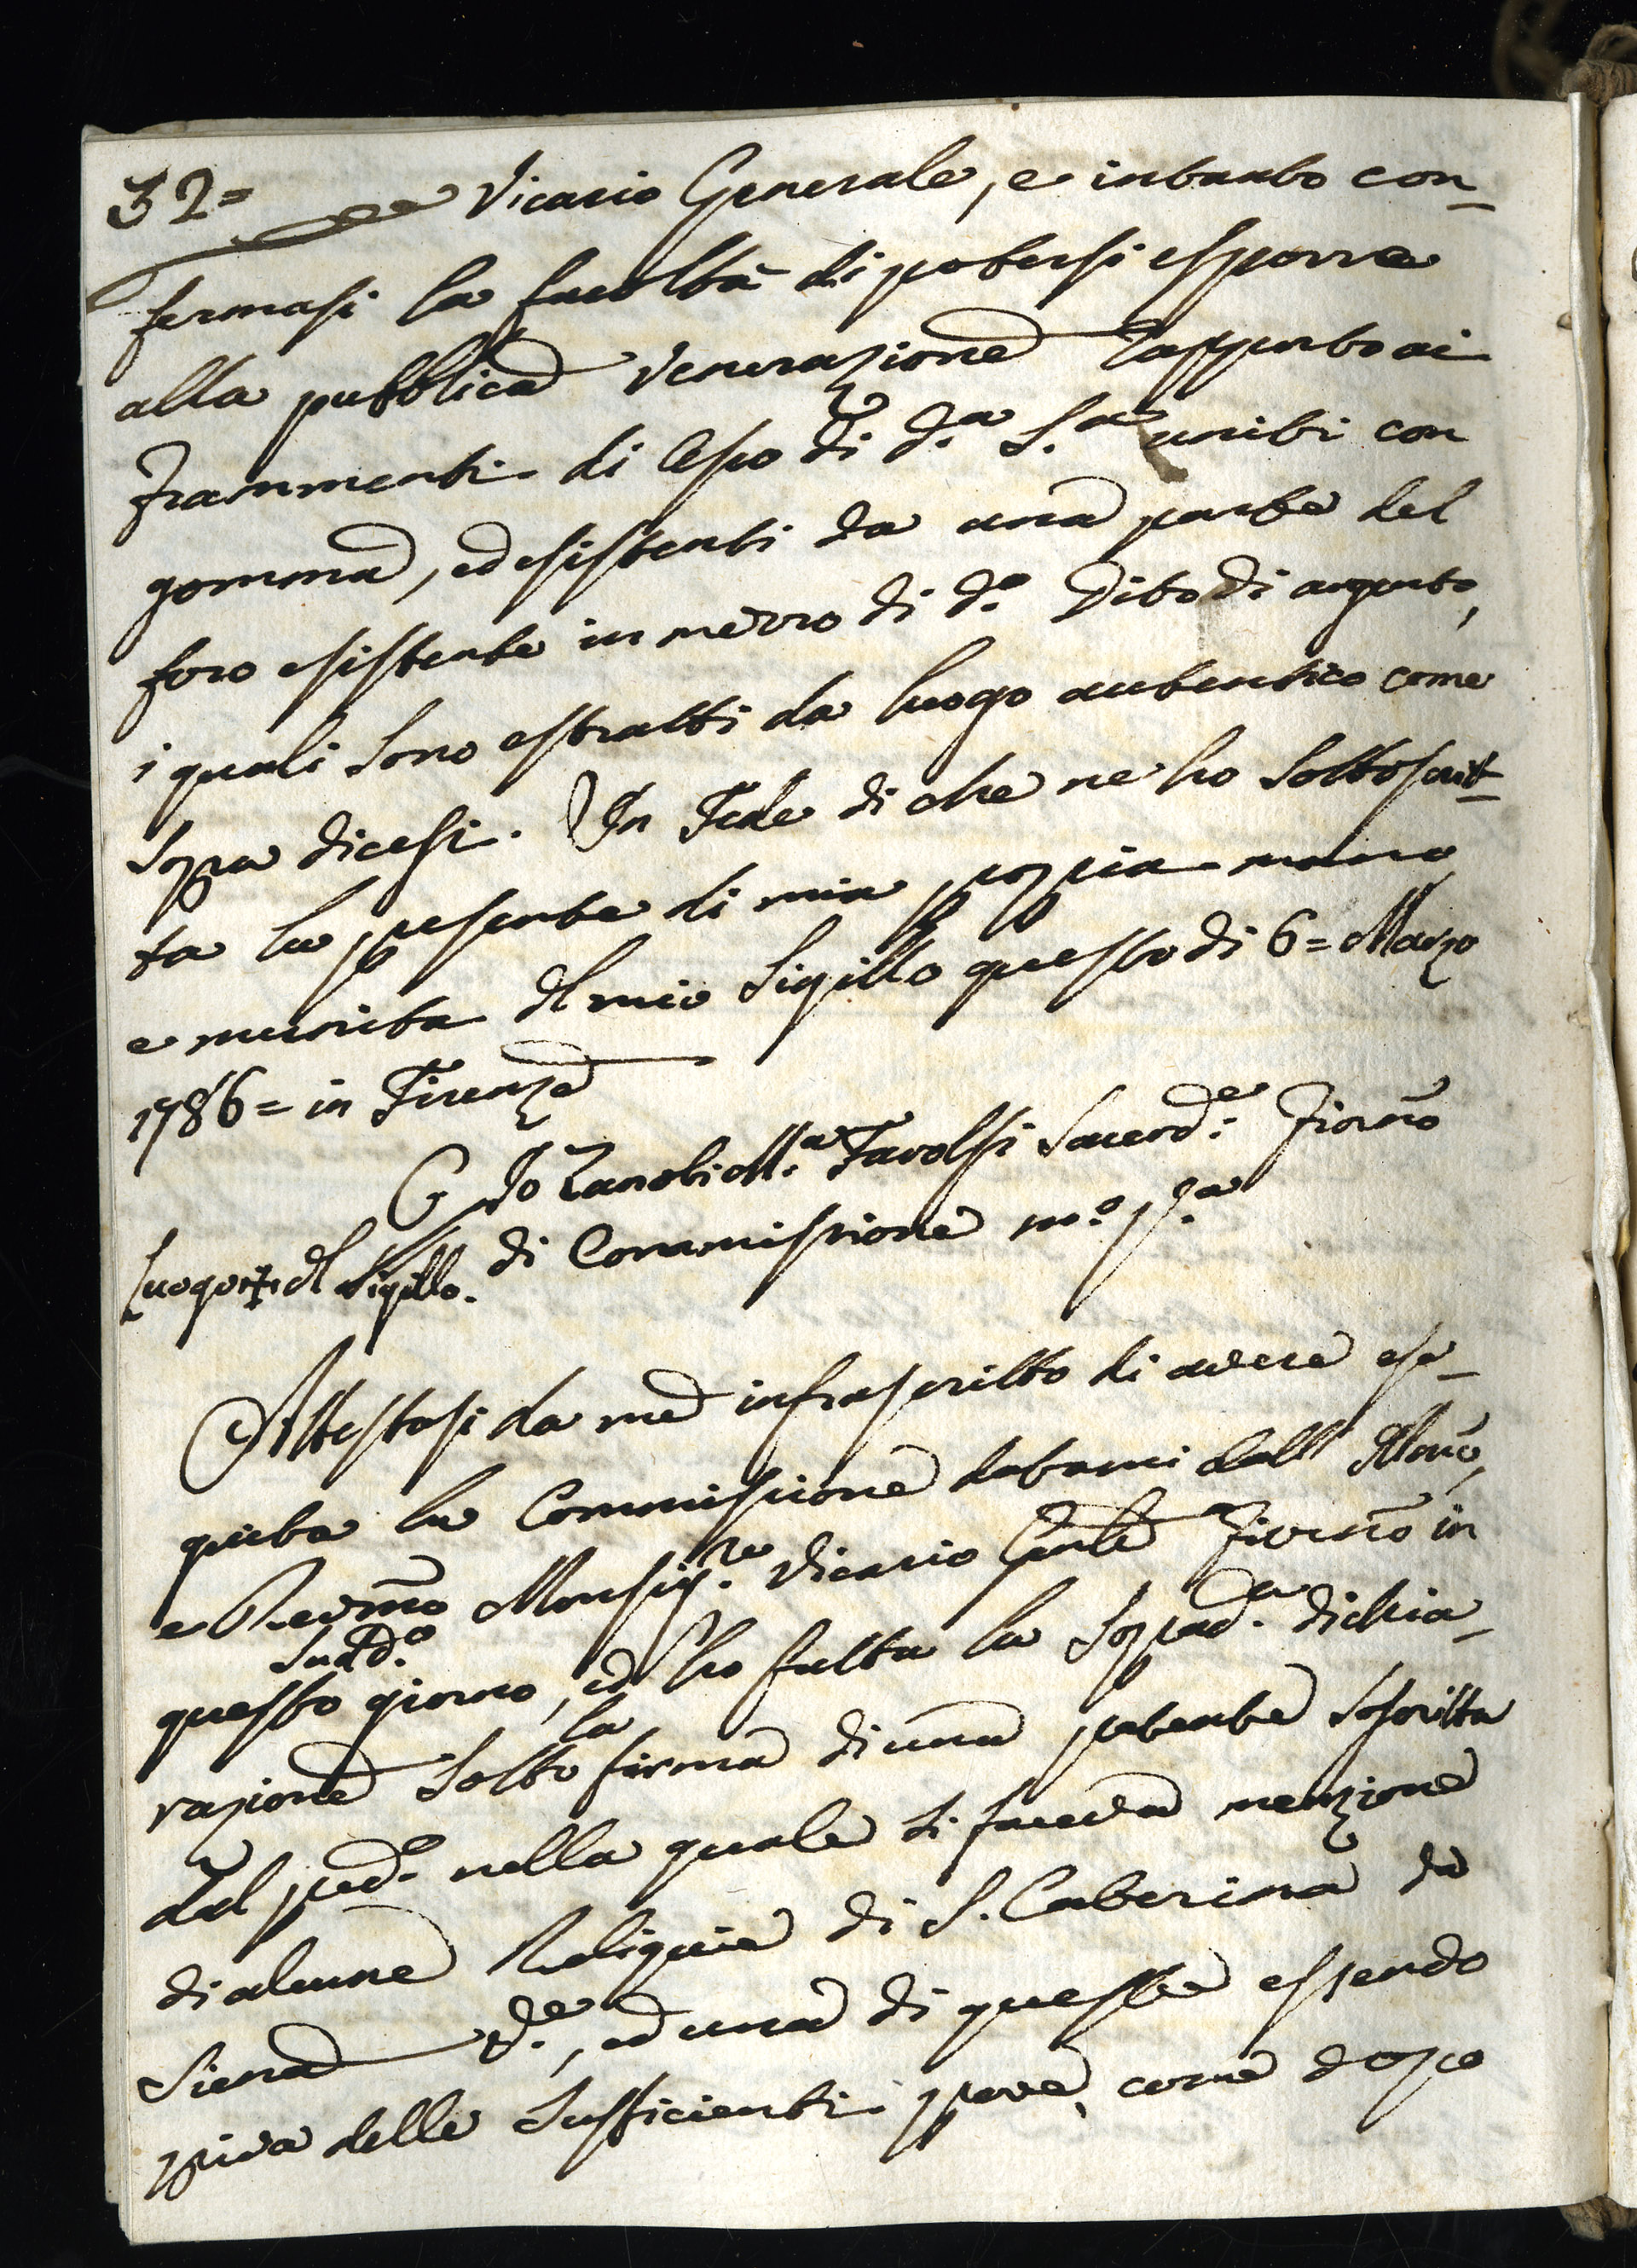 32=
Vicario Generale, e intanto con-
fermasi la facoltà di potersi esporre
alla pubblica venerazione rapporto ai
frammenti di Osso di d.a S.a uniti con
gomma, ed esistenti da una parte del
foro esistente in mezzo di d.o Dito di argento,
i quali sono estratti da luogo autentico come
sopra dicesi. In Fede di che ne ho sottoscrit-
ta la presente di mia propria mano,
e munita del mio Sigillo questo dì 6= Marzo
1786= in Firenze
Io Zanobi M.a Tavolsi Sacerd.e Fiorno
Luogo + del Sigillo.
di Commissione m.o p.a
Attestasi da me infrascritto di avere ese-
quita la Commissione datami dall' Illmo,
e Revmo Monsig.re Vicario Gnle Fiorno in
sudd.o
questo giorno, ed ho fatta la soprad.a dichia-
la
razione sotto firma di una patente soscritta
dal pred.o nella quale si faceva menzione
di alcune Reliquie di S. Caterina da
Siena d.e, ed una di queste essendo
priva delle sufficienti prove, come dopo